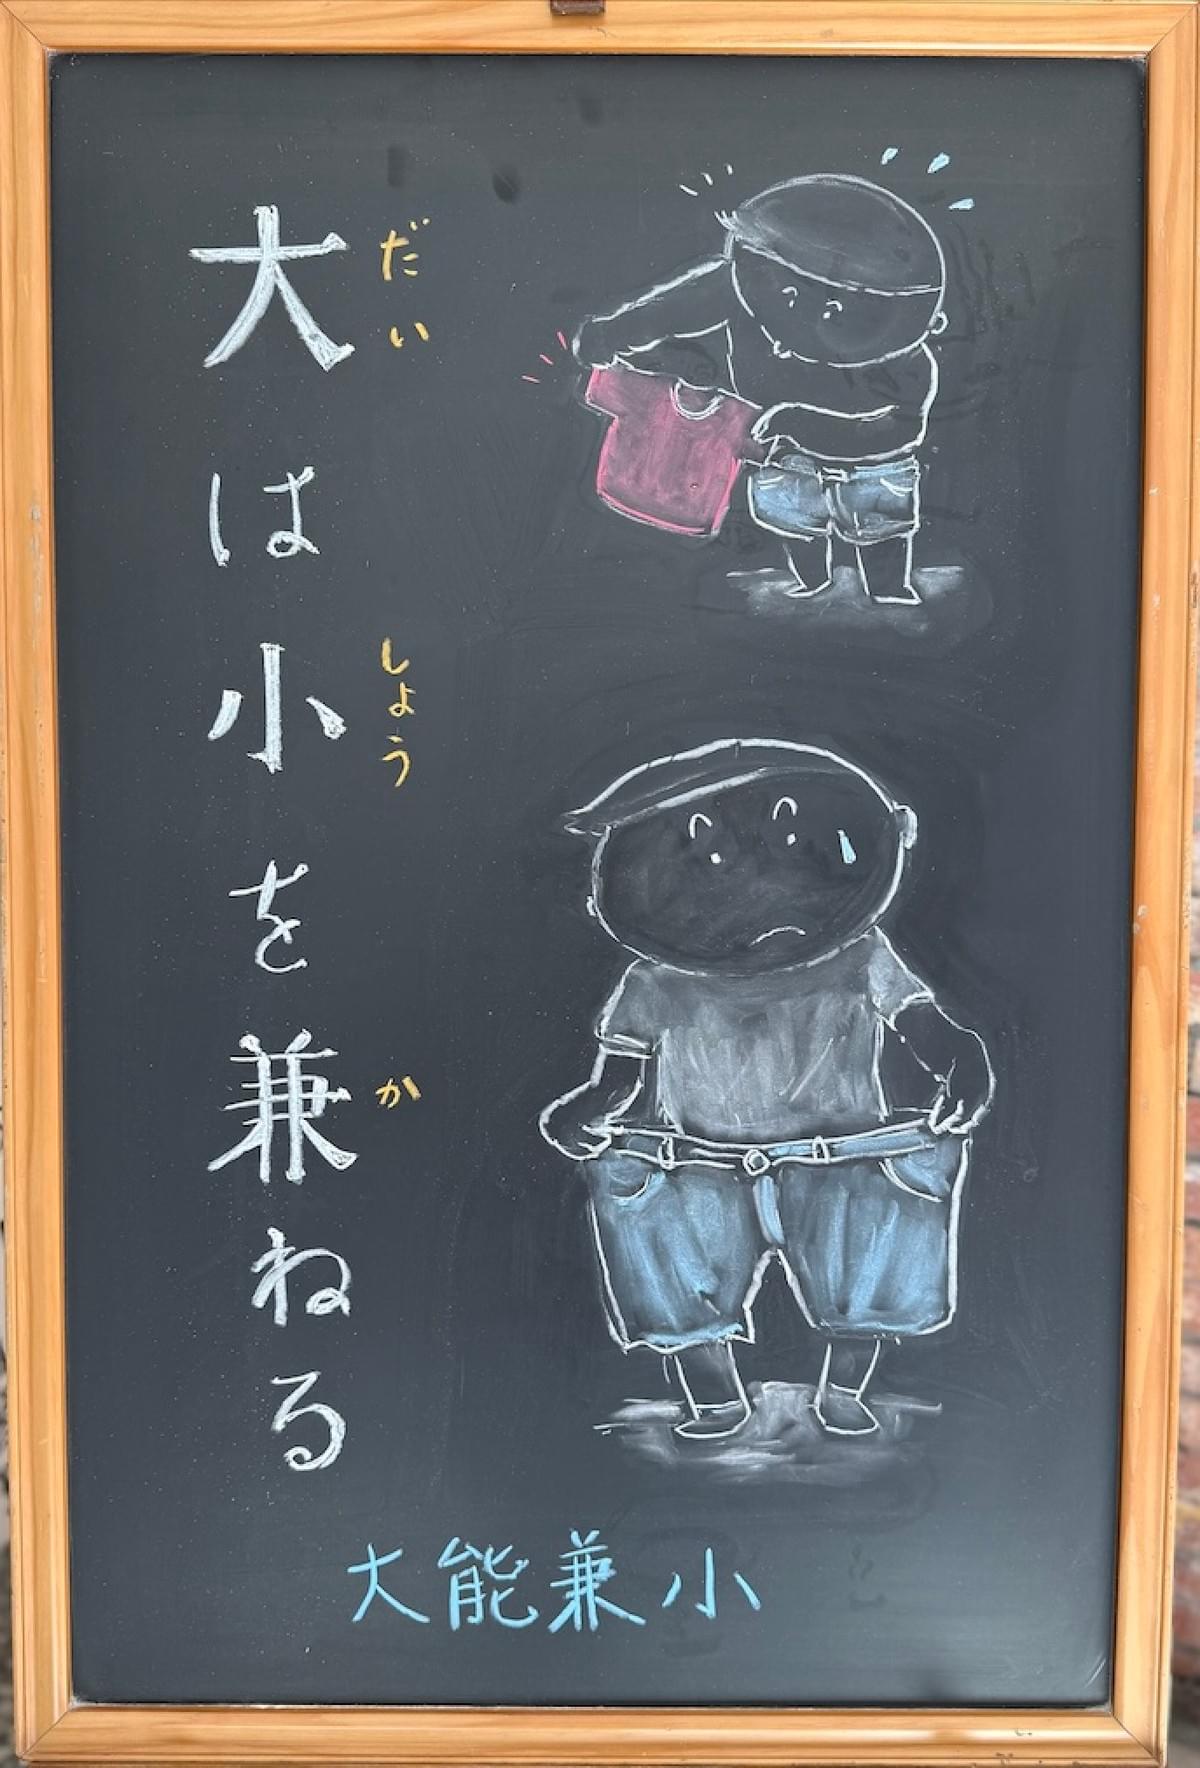 大は小を兼ねる
だい
しょう
か
大能兼小